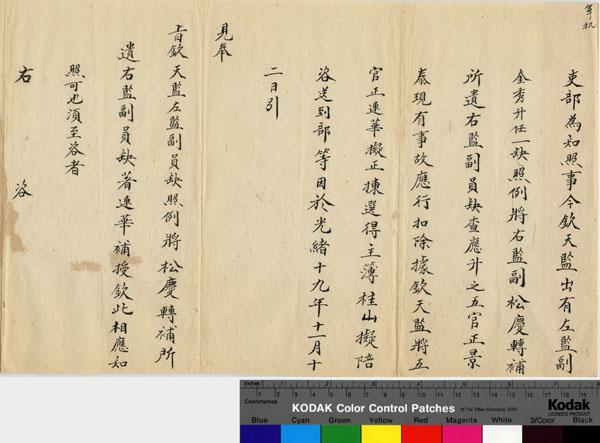 吏部為知照事今欽天監出有左監副
奎秀升任一缺照例將右監副松慶轉補
所遺右監副員缺查應升之五官正景
泰現有事故應行扣除據欽天監將五
官正連華擬正揀選得主簿桂山擬陪
咨送到部等因於光緒十九年十一月十
二日引
見奉
旨欽天監左監副員缺照例將松慶轉補所
遺右監副員缺著連華補授欽此相應知
照可也須至咨者
右咨
Inches 1 2 3 4 5 6 7 8
Centimetres 1 2 3 4 5 6 7 8 9 10 11 12 13 14 15 16 17 18 19
KODAK Color Control Patches © The Tiffen Company, 2000 Kodak
LICENSED PRODUCT
Blue Cyan Green Yellow Red Magenta White 3/Color Black